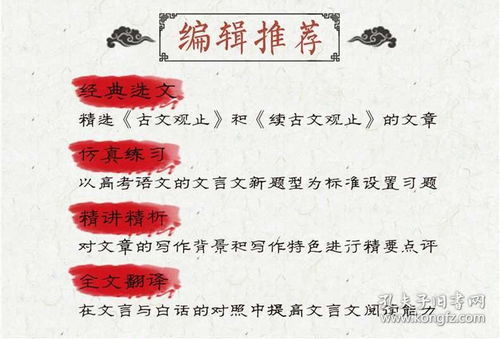 编辑推荐
经典选文
精选《古文观止》和《续古文观止》的文章
仿真练习
以高考语文的文言文新题型为标准设置习题
精讲精析
对文章的写作背景和写作特色进行精要点评
全文翻译
在文言与白话的对照中提高文言文阅读能力
孔夫子旧书网
www.kongfz.com